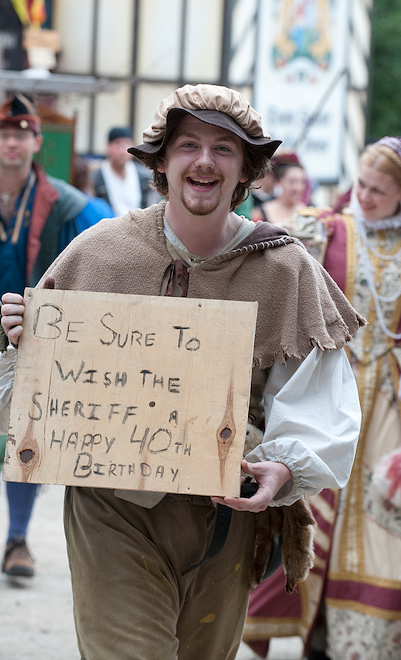 BE SURE TO
WISH THE
SHERIFF • A
HAPPY 40TH
BIRTHDAY